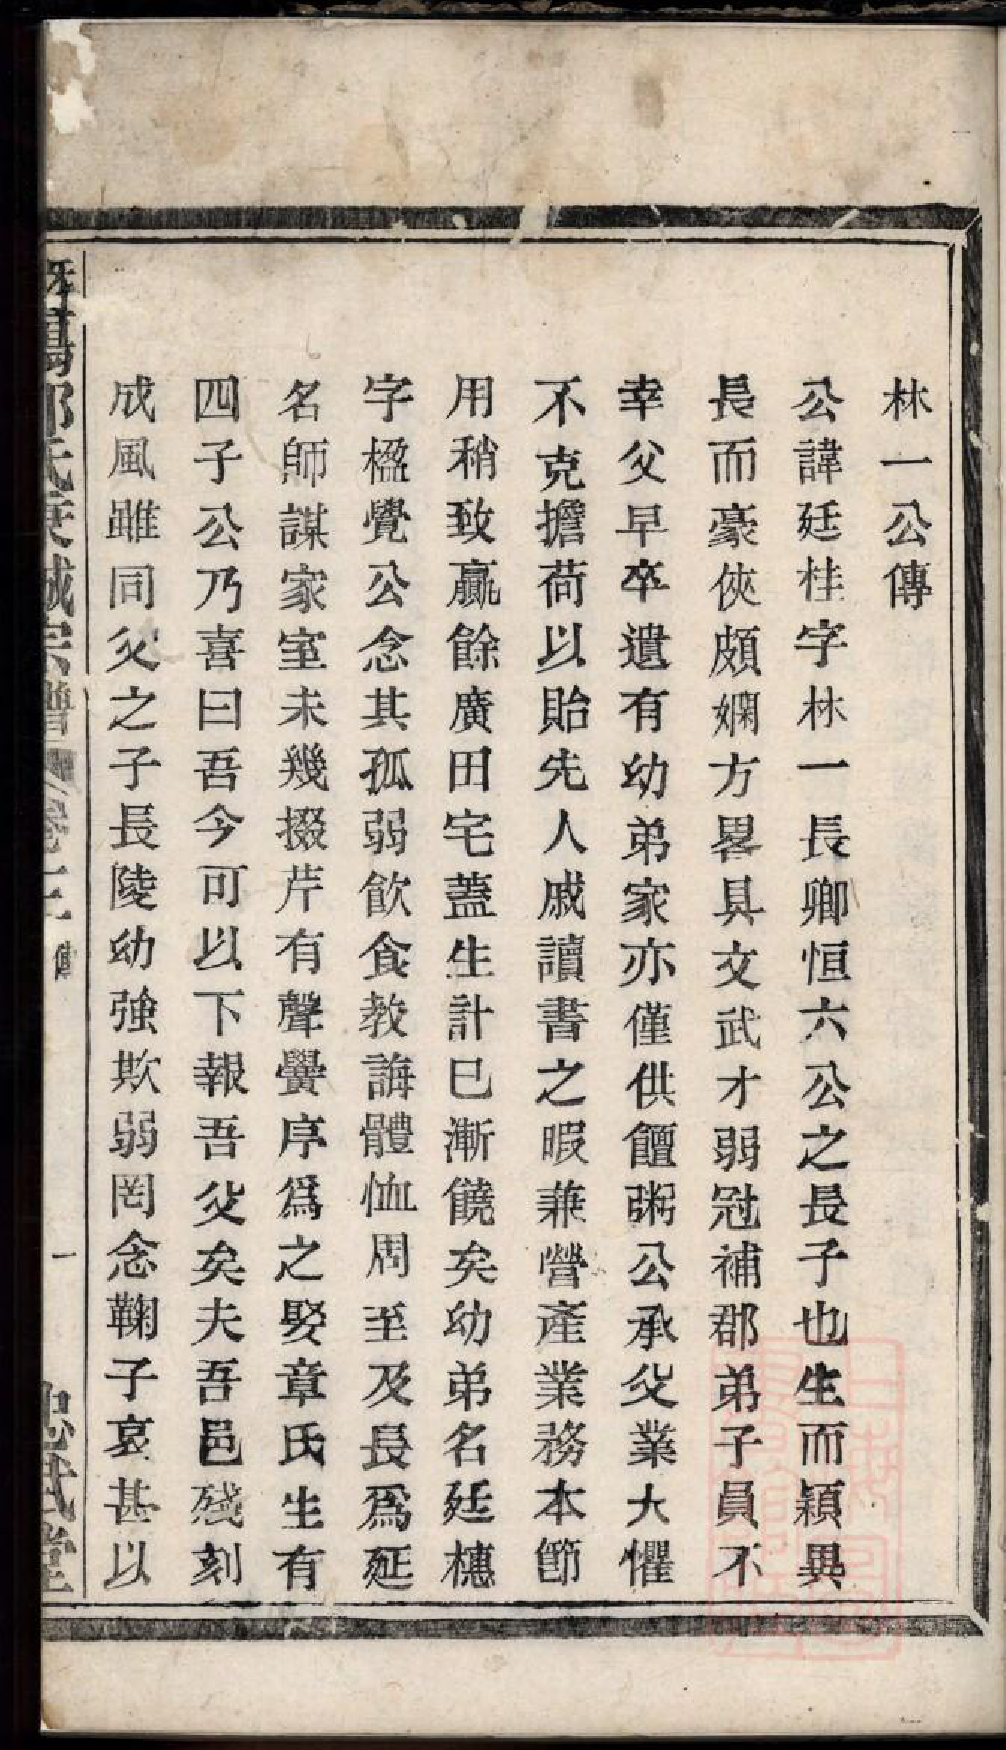 林一公傳
公諱廷桂字林一長卿恒六公之長子也生而穎異
長而豪俠頗嫻方畧具文武才弱冠補郡弟子員不
幸父早卒遺有幼弟家亦僅供饘粥公承父業大懼
不克擔荷以貽先人戚讀書之暇兼營產業務本節
用稍致贏餘廣田宅蓋生計已漸饒矣幼弟名廷橞
字楹覺公念其孤弱飲食教誨體恤周至及長爲延
名師謀家室未幾掇芹有聲黌序爲之娶章氏生有
四子公乃喜曰吾今可以下報吾父矣夫吾邑殘刻
成風雖同父之子長陵幼強欺弱罔念鞠子哀甚以
氏 宗譜 卷 傳 一 忠武堂